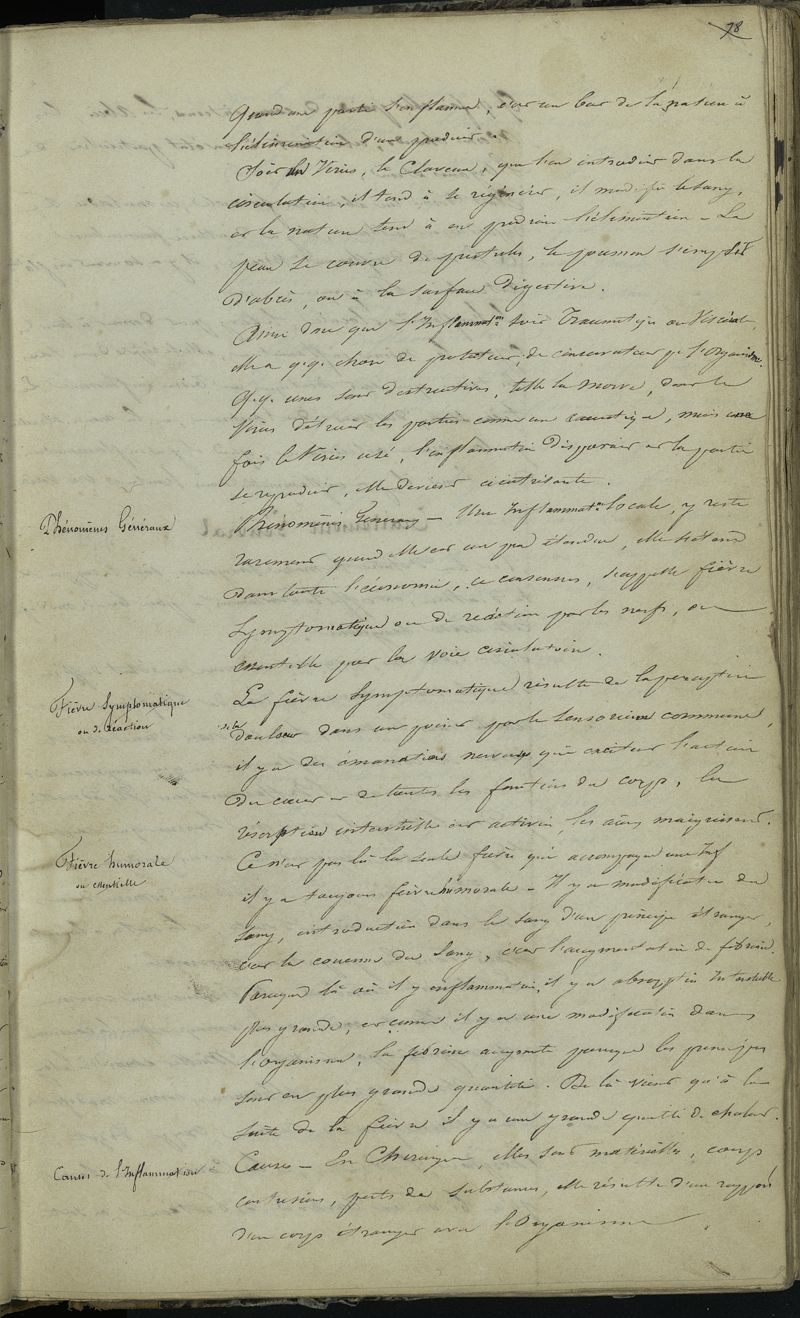 78
Quand une partie s'enflamme, c'est un but de la nature à
l'élimination d'un produit.
Soit un Virus, le Claveau, que l'on introduit dans la
circulation, il tend à se régénérer, il modifie le sang,
et la nature tend à en produire l'élimination - La
peau se couvre de pustules, le poumon s'emplit
d'abcès, ou à la surface digestive.
Ainsi donc que l'Inflammation soit Traumatique ou Viscérale
elle a q.q. chose de protecteur, de conservateur p. l'organisme.
Q.q. unes sont destructives, telle la morve, dont le
Virus détruit les parties comme un caustique, mais une
fois le Virus usé, l'inflammation disparait et la partie
se reproduit, elle devient cicatrisante.
Phénomènes Généraux
Phénomènes Généraux - Une Inflammation locale, y reste
rarement quand elle est un peu étendue, elle s'étend
dans toute l'économie, ce consensus, s'appelle fièvre
symptomatique ou de réaction par les nerfs, ou
essentielle par la voie circulatoire.
Fièvre Symptomatique
ou de réaction
La fièvre symptomatique résulte de la perception
de la douleur dans un point par le sensorium commune,
il y a des émanations nerveuses qui excitent l'action
du cœur et de toutes les fonctions du corps, la
résorption interstitielle est activée, les maigrissent.
Fièvre humorale
ou essentielle
Ce n'est pas là la seule fièvre qui accompagne une Inf
il y a toujours fièvre humorale - Il y a modification du
sang, introduction dans le sang d'un principe étranger,
c'est la couenne du sang, c'est l'augmentation de fibrine.
Parceque là où il y inflammation, il y a absorption Interstitielle
plus grande, et comme il y a une modification dans
l'organisme, la fibrine augmente parceque les principes
sont en plus grande quantité. De là vient qu'à la
suite de la fièvre il y a une grande quantité de chaleur.
Causes de l'Inflammation
Causes - En Chirurgie, elles sont matérielles, coups
contusions, perte de substances, elle résulte d'un rapport
d'un corps étranger avec l'Organisme.